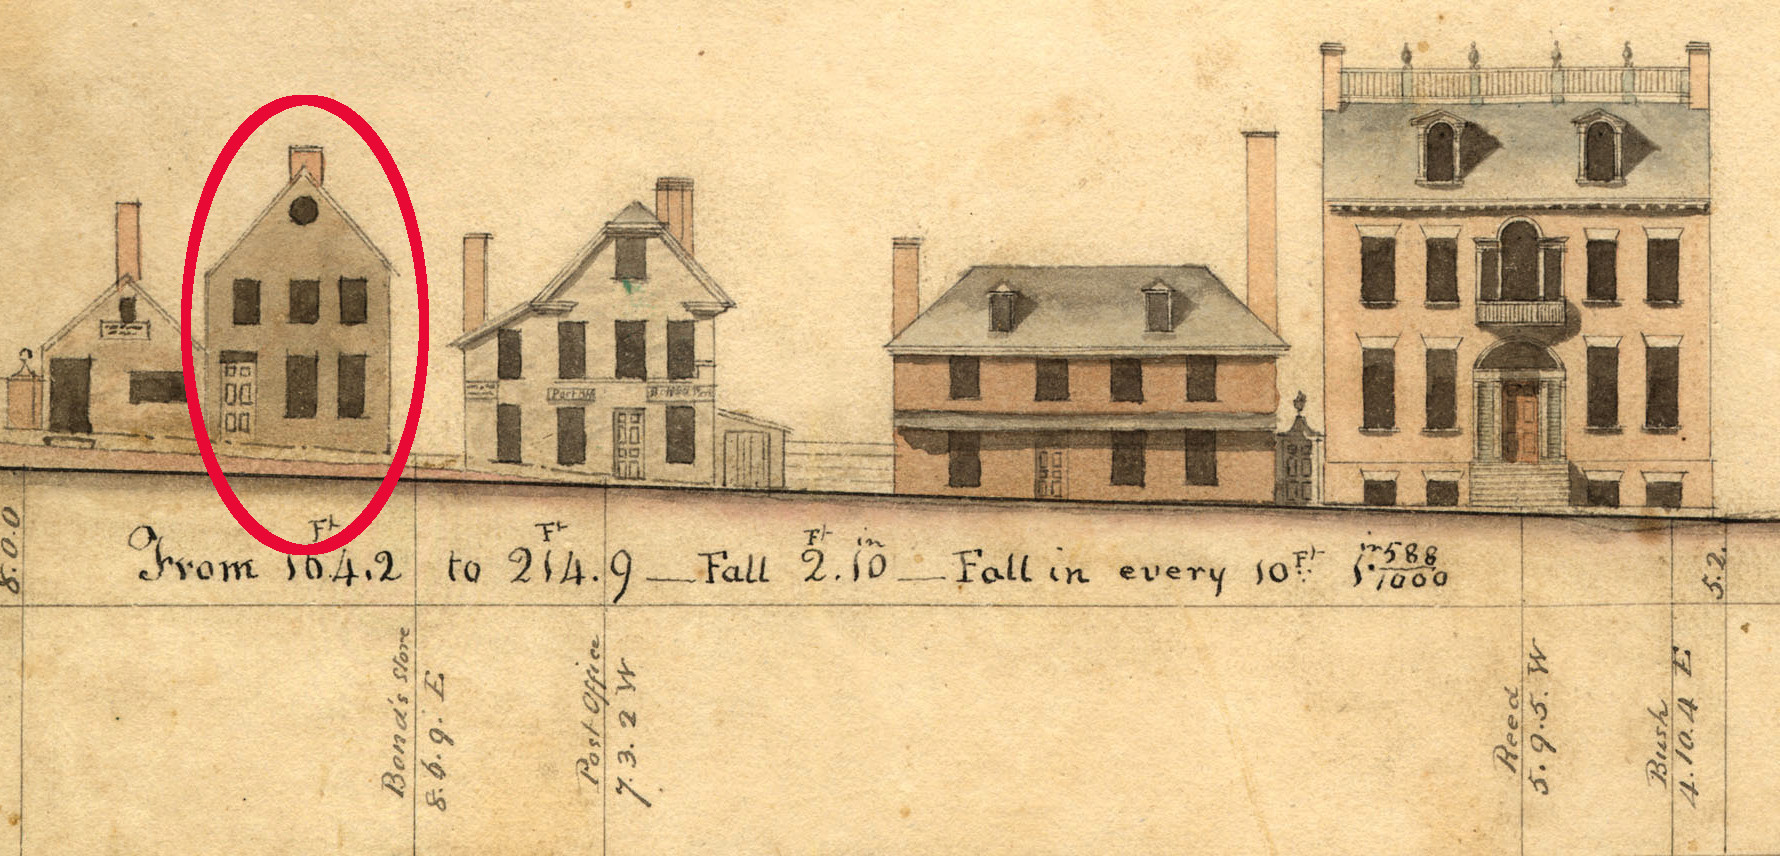 Post Off
From 164.2 Ft to 214.9 Ft — Fall 2 Ft. 10 in — Fall in every 10 Ft. 1 in. 588/1000
8.0.0
Bond's Store
8.6.9. E
Post Office
7.3.2 W
Reed
5.9.5. W
Bush
4.10.4 E
5.2.